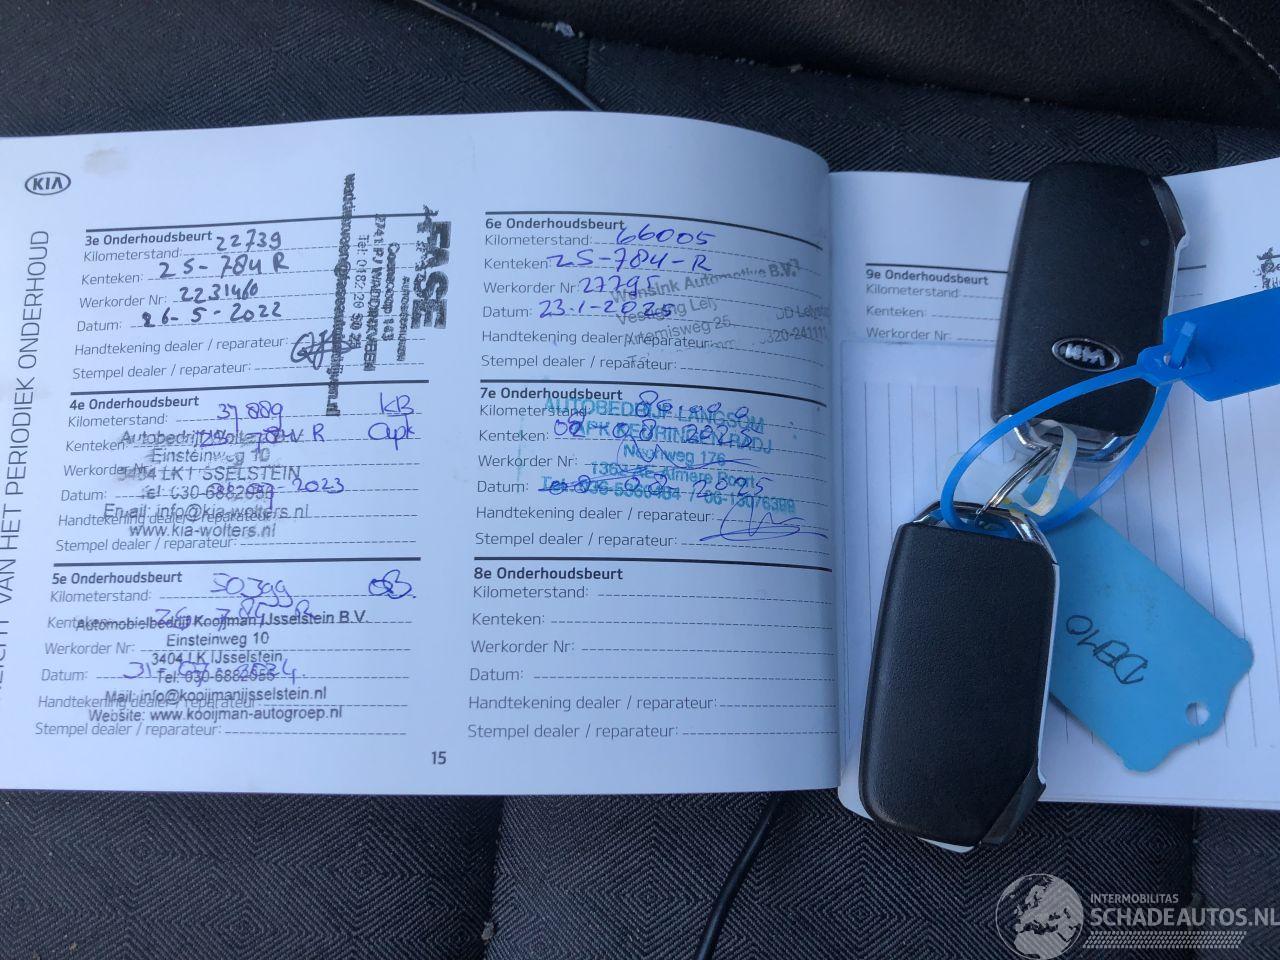 KIA
VAN HET PERIODIEK ONDERHOUD
3e Onderhoudsbeurt
Kilometerstand: 22739
Kenteken: 25-784 R
Werkorder Nr: 2231460
Datum: 26-5-2022
Handtekening dealer / reparateur:
Stempel dealer / reparateur:
FASE
4e Onderhoudsbeurt
Kilometerstand: 37889 KB
Kenteken: R apk
Autobedrijf Wolters B.V.
Einsteinweg 10
Werkorder Nr:
3404 LK IJSSELSTEIN
Datum: 2023
Tel: 030-6882059
Email: info@kia-wolters.nl
Handtekening dealer / reparateur:
www.kia-wolters.nl
Stempel dealer / reparateur:
5e Onderhoudsbeurt
Kilometerstand: 50399
Kenteken: 25 784 R
Automobielbedrijf Kooijman IJsselstein B.V.
Einsteinweg 10
Werkorder Nr:
3404 LK IJsselstein
Datum: 31-07-2024
Tel: 030-6882058
Mail: info@kooijmanijsselstein.nl
Handtekening dealer / reparateur:
Website: www.kooijman-autogroep.nl
Stempel dealer / reparateur:
15
6e Onderhoudsbeurt
Kilometerstand: 66005
Kenteken: 25-784-R
Werkorder Nr: 27795
Wensink Automotive B.V.
Datum: 23-1-2025
Vestiging Lely
Artemisweg 25
Handtekening dealer / reparateur:
Stempel dealer / reparateur:
7e Onderhoudsbeurt
Kilometerstand:
AUTOBEDRIJF LANGSOM
Kenteken:
APK KEURINGEN RADJ
Werkorder Nr:
Neonweg 176
1362 Almere Poort
Datum: 2025
06-13076399
Handtekening dealer / reparateur:
Stempel dealer / reparateur:
8e Onderhoudsbeurt
Kilometerstand:
Kenteken:
Werkorder Nr:
Datum:
Handtekening dealer / reparateur:
Stempel dealer / reparateur:
9e Onderhoudsbeurt
Kilometerstand:
Kenteken:
Werkorder Nr:
KIA
INTERMOBILITAS
SCHADEAUTOS.NL